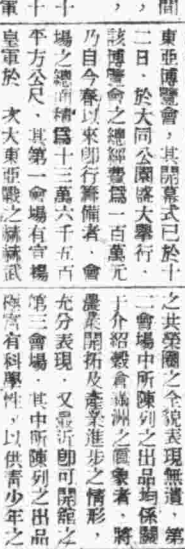 東亞博覽會、其開幕式已於十
二日、於大同公園盛大舉行．
該博覽會之總經費爲一百萬元
乃自今春以來卽行籌備者．會
場之總面積爲十三萬六千五百
平方公尺．其第一會場有皇
皇軍於 次大東亞戰之赫赫武
之共榮圈之全貌表現無遺，第
二會場中所陳列之出品均係關
于介紹穀倉滿洲之 象者，將
農業開拓及產業進步之情形，
充分表現．又最近卽可開館之
第三會場．其中所陳列之出品
有科學性，以供靑少年之